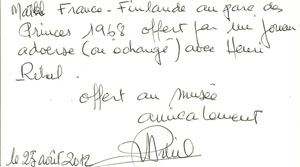 Match France - Finlande au parc des
Princes 1968 offert par un joueur
adverse (ou échangé) avec Henri
offert au musée
le 23 août 2012